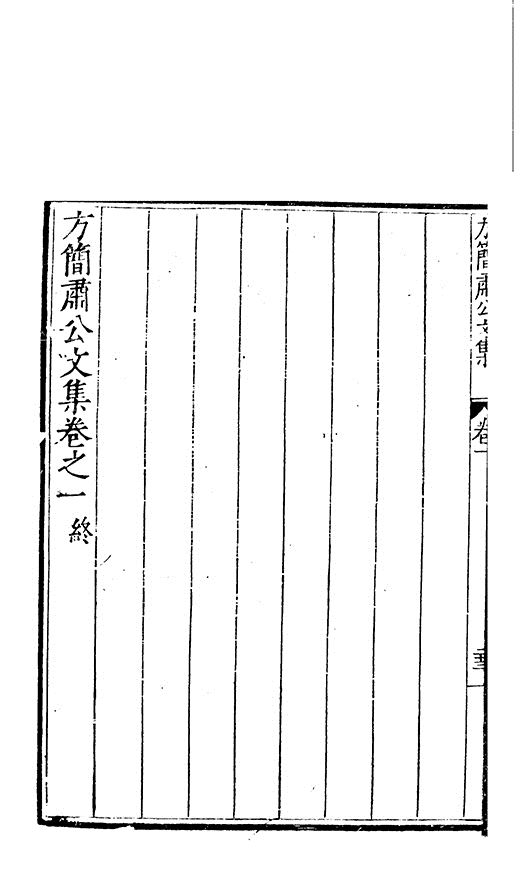 方簡肅公文集
卷一
方簡肅公文集卷之一
終